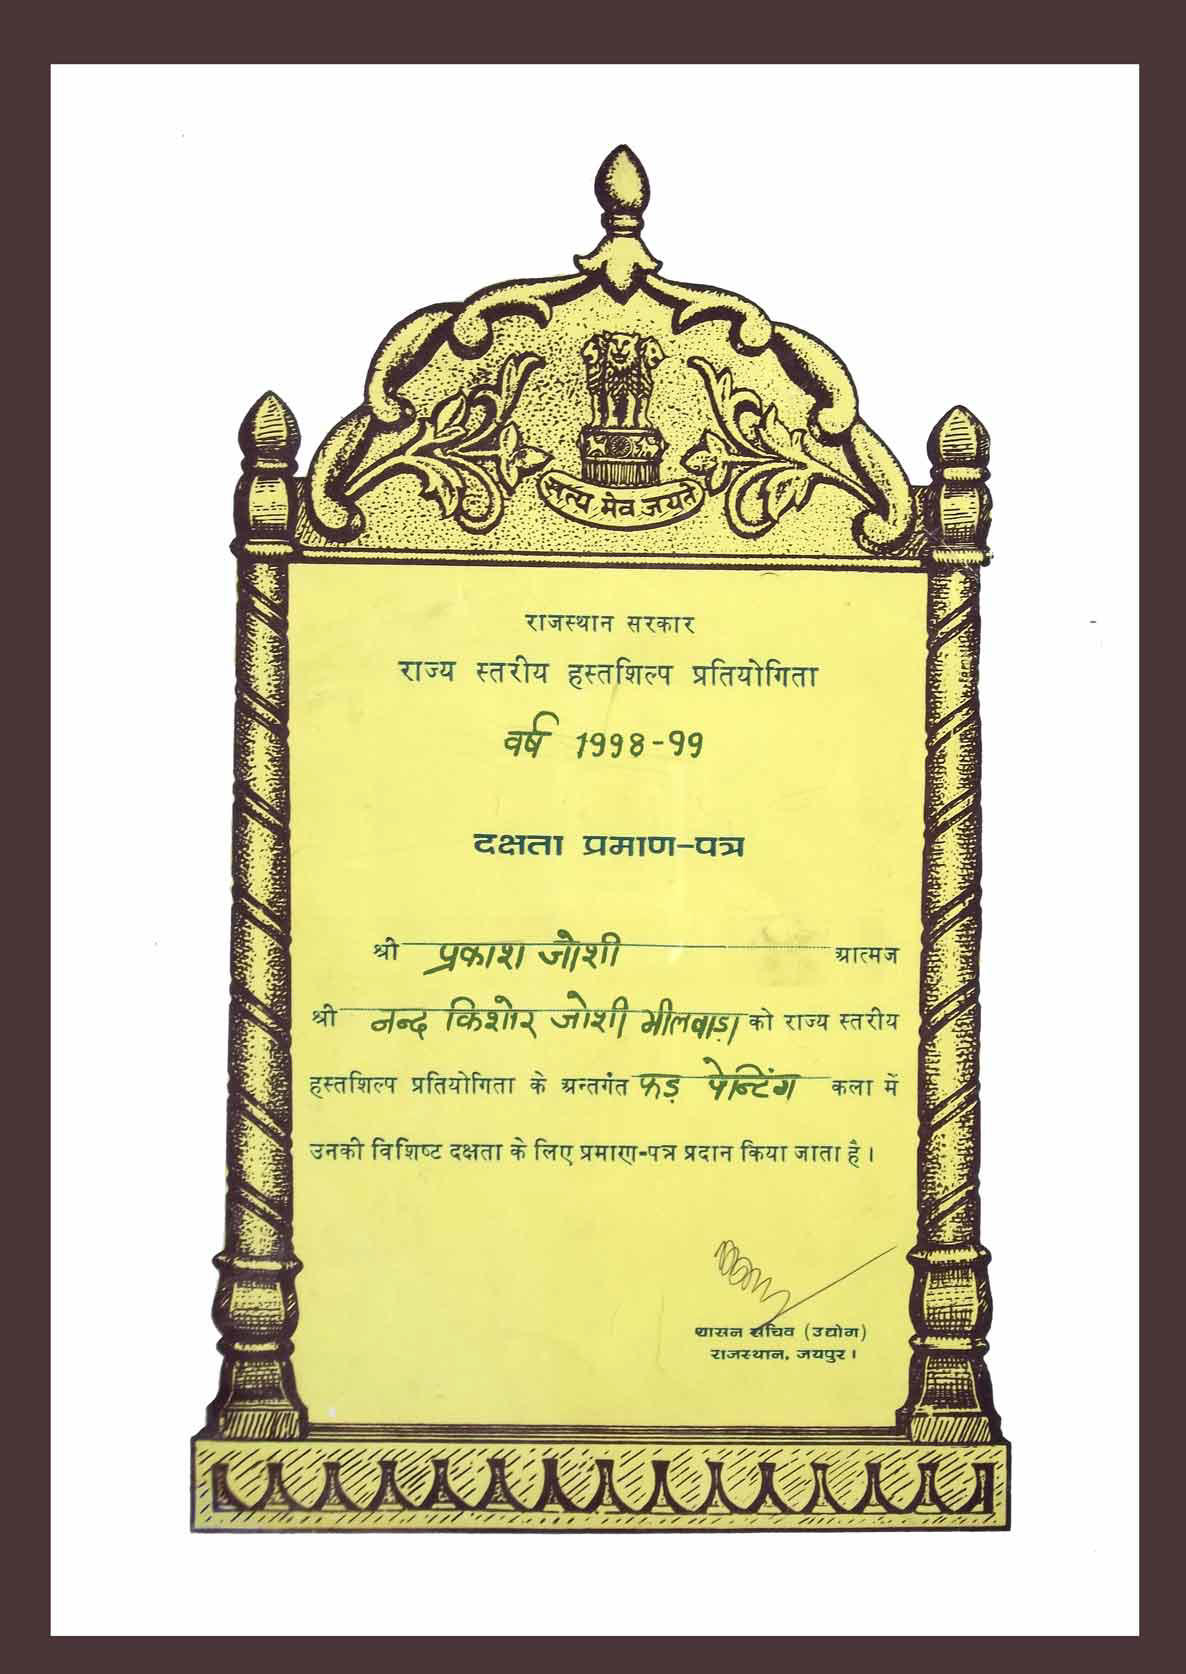 सत्य मेव जयते
राजस्थान सरकार
राज्य स्तरीय हस्तशिल्प प्रतियोगिता
वर्ष 1998-99
दक्षता प्रमाण-पत्र
श्री प्रकाश जोशी आत्मज
श्री नन्द किशोर जोशी भीलवाड़ा को राज्य स्तरीय
हस्तशिल्प प्रतियोगिता के अन्तर्गत फड़ पेन्टिंग कला में
उनकी विशिष्ट दक्षता के लिए प्रमाण-पत्र प्रदान किया जाता है।
शासन सचिव (उद्योग)
राजस्थान, जयपुर।